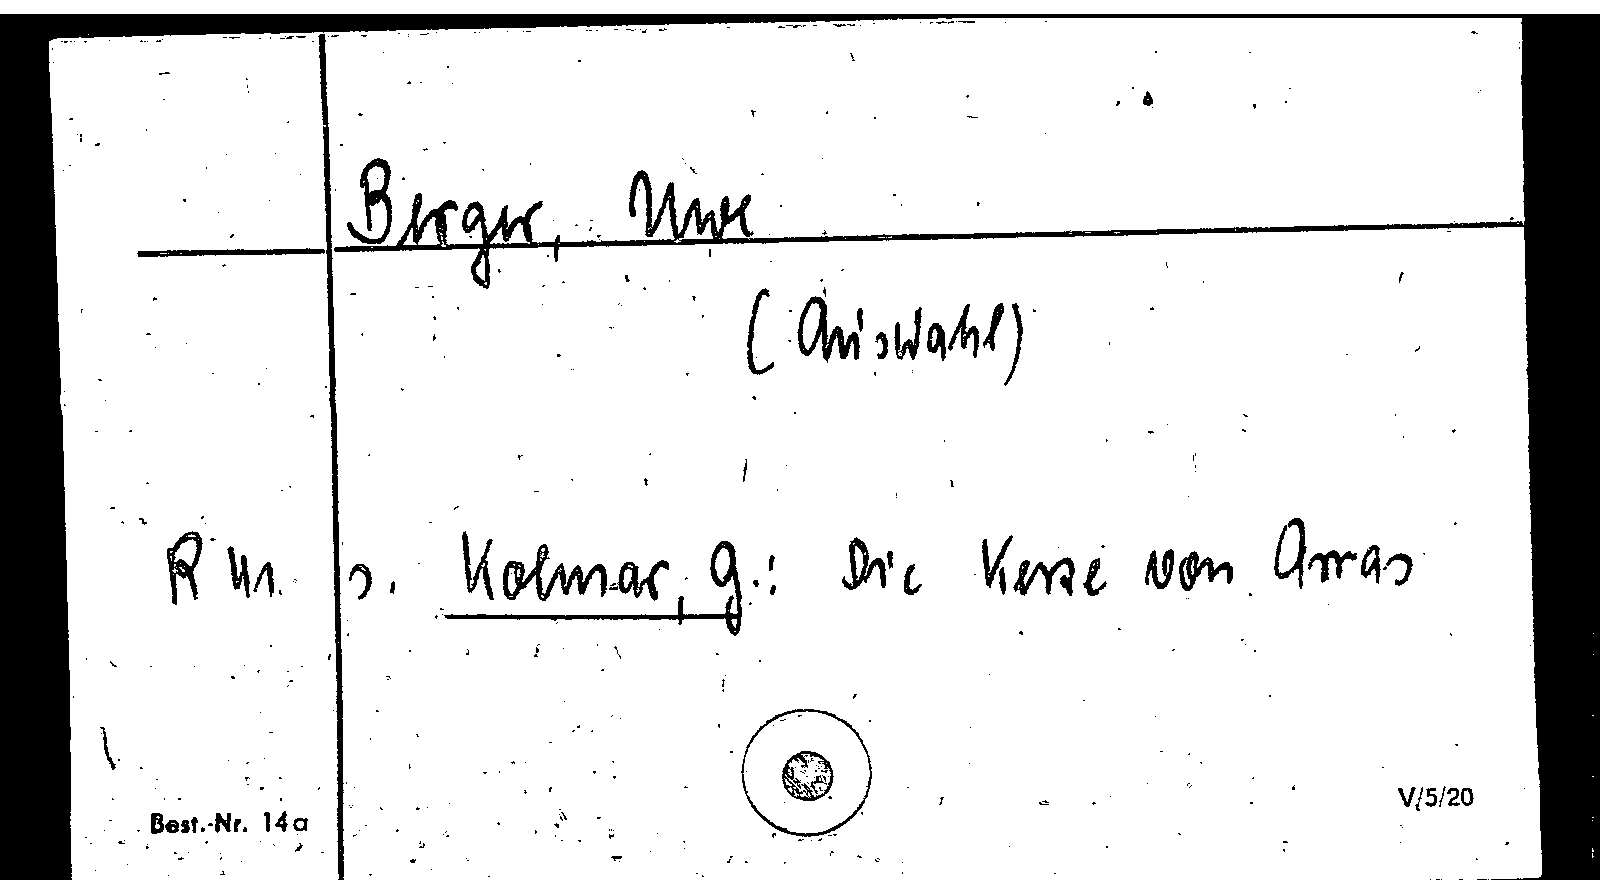 Berger, Uwe
(Auswahl)
R 41. s. Kolmar, G.: Die Kerze von Arras
Best.-Nr. 14a
V/5/20